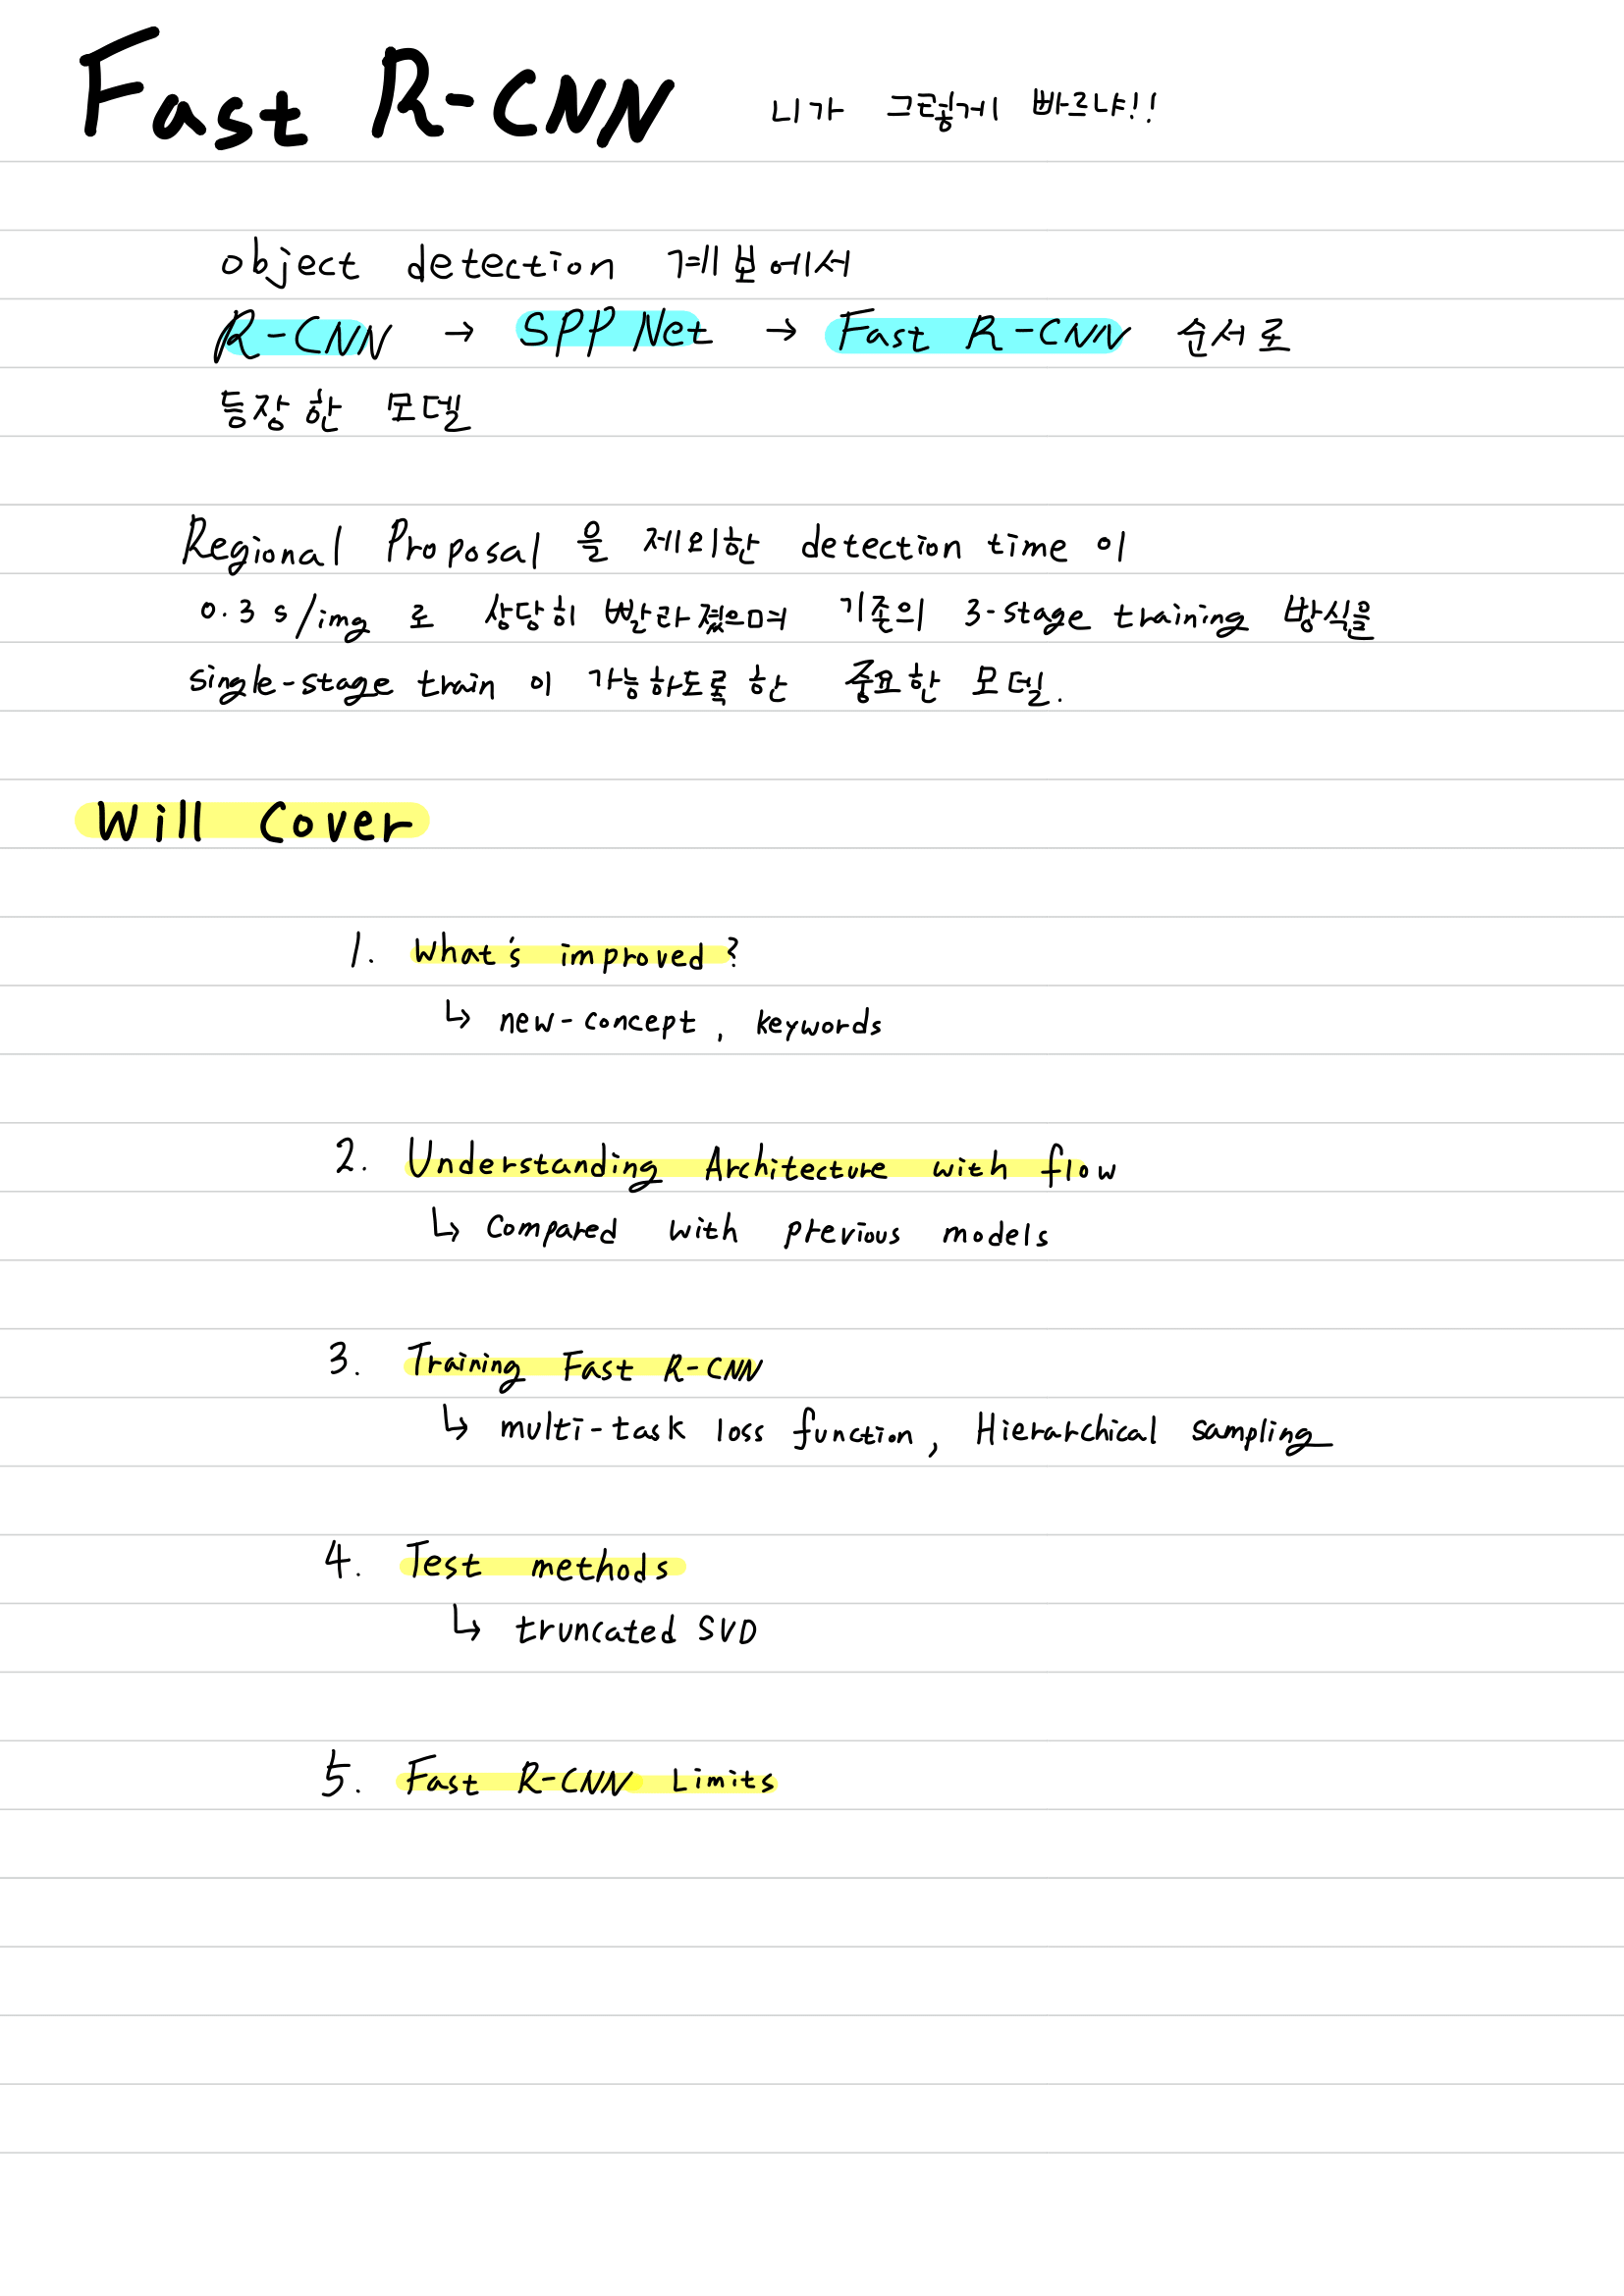 Fast R-CNN 니가 그렇게 빠르냐!!
object detection 계보에서
R-CNN → SPP Net → Fast R-CNN 순서로
등장한 모델
Regional Proposal 을 제외한 detection time 이
0.3 s/img 로 상당히 빨라졌으며 기존의 3-stage training 방식을
single-stage train 이 가능하도록 한 중요한 모델.
Will Cover
1. What's improved?
↳ new-concept, keywords
2. Understanding Architecture with flow
↳ Compared with previous models
3. Training Fast R-CNN
↳ multi-task loss function, Hierarchical sampling
4. Test methods
↳ truncated SVD
5. Fast R-CNN Limits